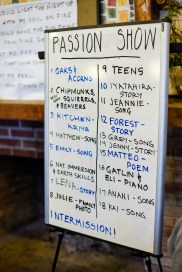 PASSION SHOW
1 OAKS &
ACORNS
2 CHIPMUNKS,
SQUIRRELS,
& BEAVERS
3 KITCHEN-
4 MATTHEW-SONG
5 EMILY-SONG
6 NAT IMMERSION
& EARTH SKILLS
7 LENA-STORY
8 JULIE-FAMILY
PHOTO
INTERMISSION!
9 TEENS
10 IYATAHIRA-
STORY
11 JEANNIE-
SONG
12 FOREST-
STORY
13 -SONG
14 JENNY-STORY
15 MATTEO-
POEM
16 GATLIN &
ELI-PIANO
17 ANANI-SONG
18 KAI-SONG